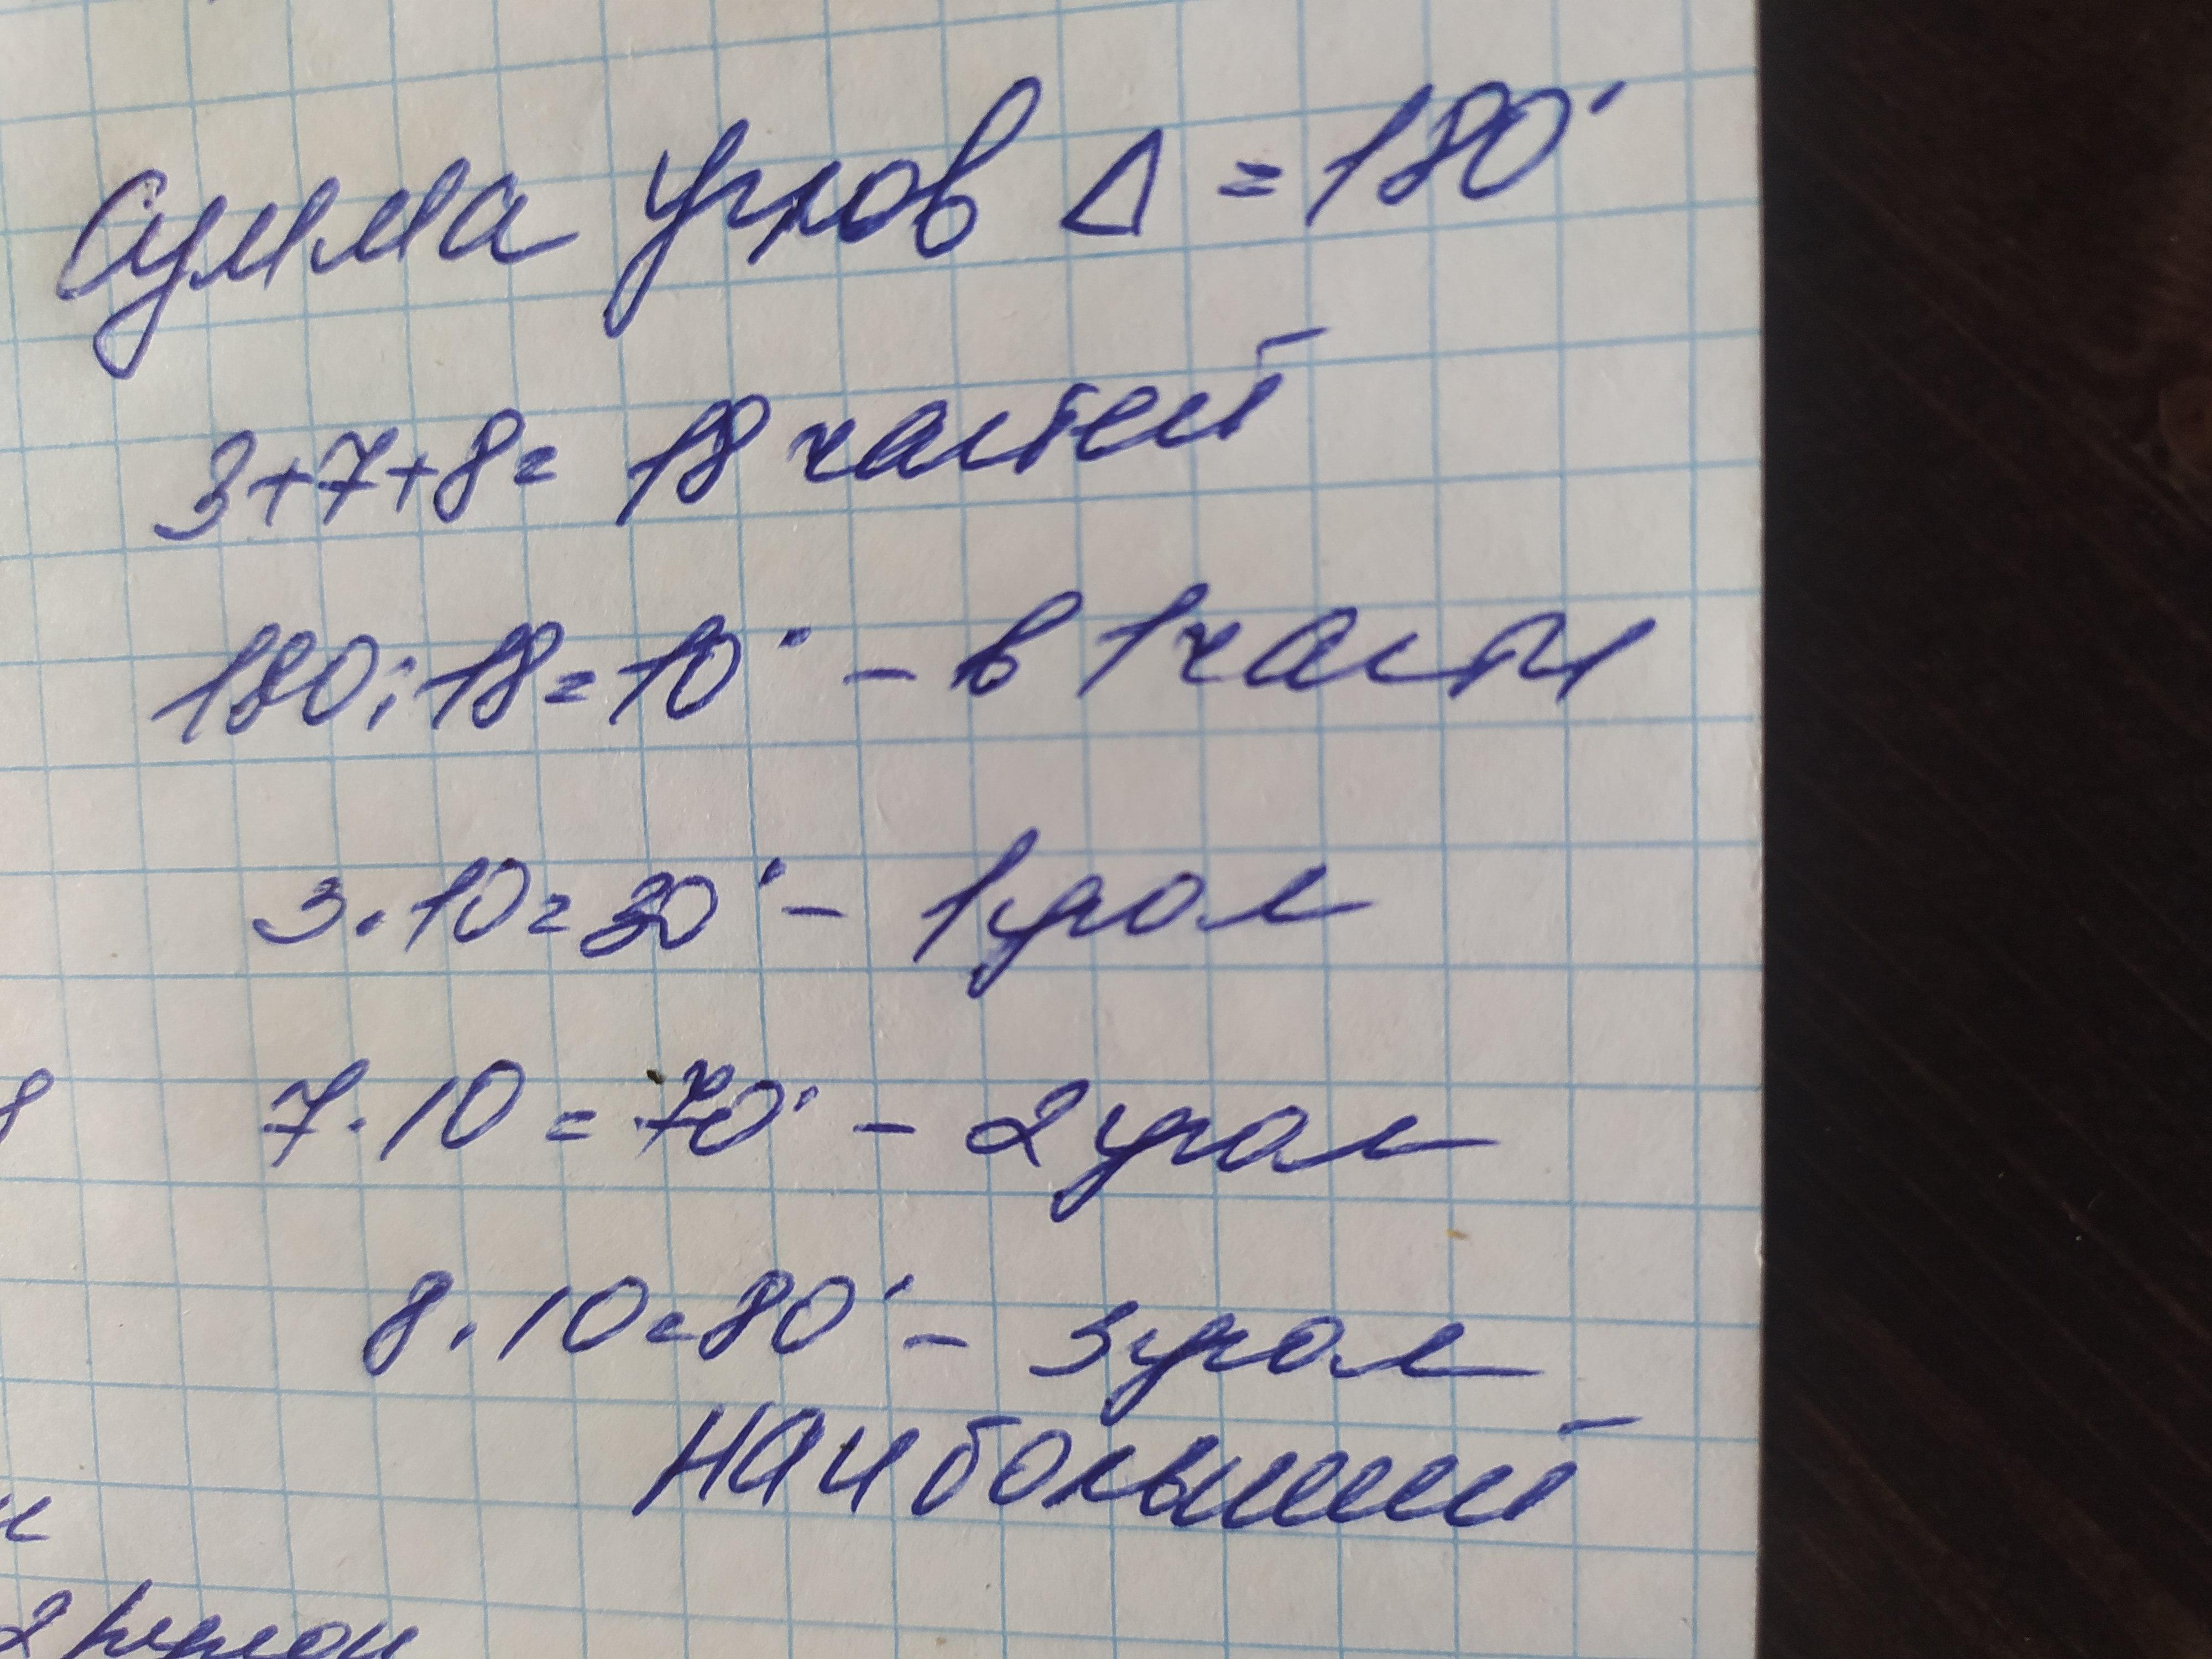 Сумма углов Δ = 180°
3+7+8= 18 частей
180:18=10° – в 1 части
3·10=30° – 1 угол
8
7·10 = 70° – 2 угол
8·10=80° – 3 угол
наибольший
2